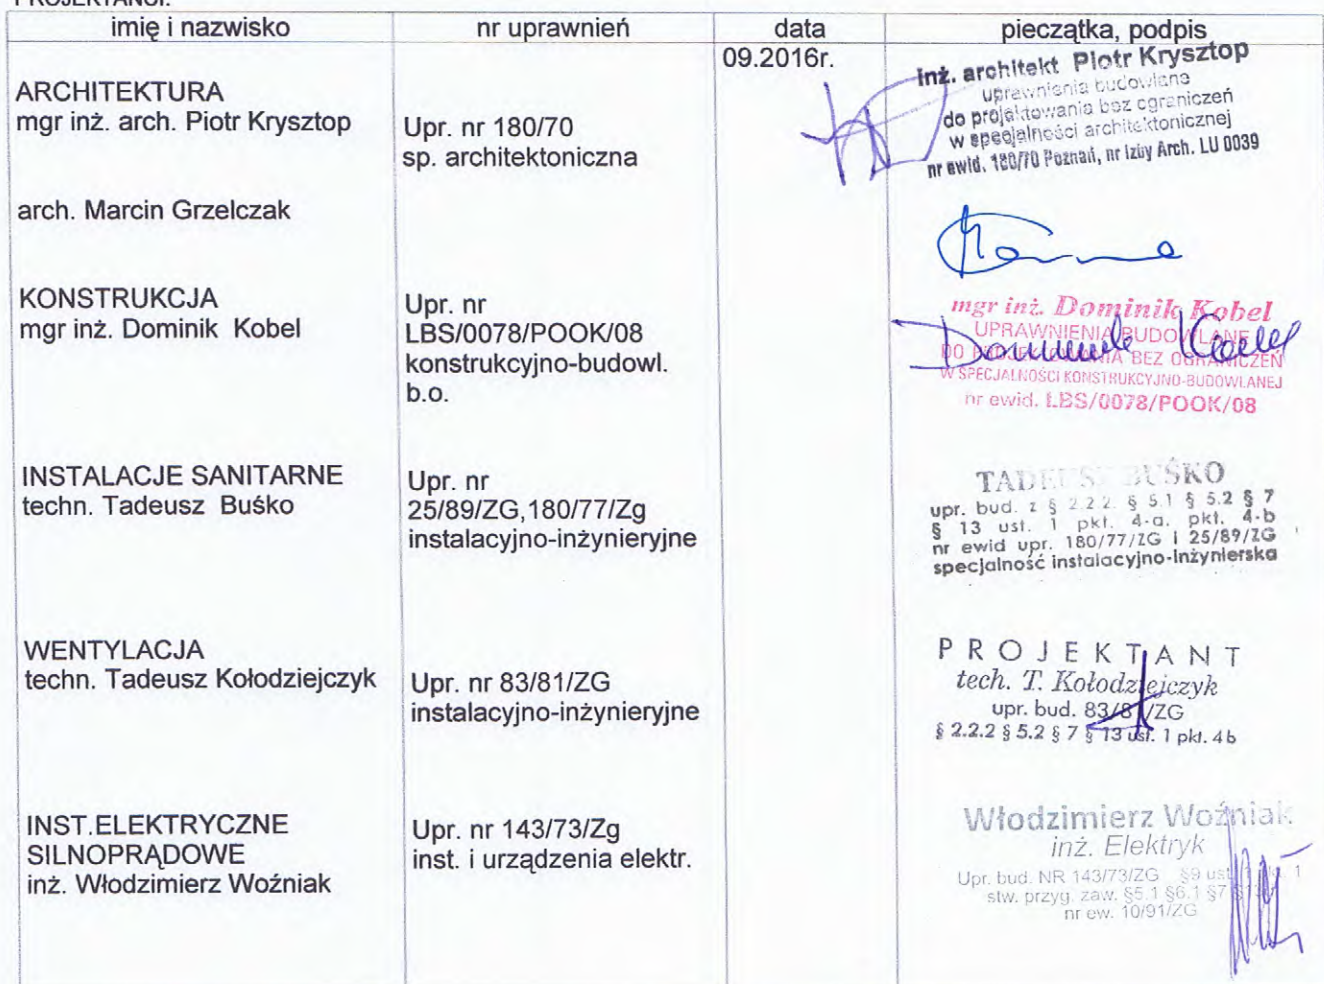 PROJEKTANCI:
imię i nazwisko
nr uprawnień
data
pieczątka, podpis
09.2016r.
ARCHITEKTURA
mgr inż. arch. Piotr Krysztop
Upr. nr 180/70
sp. architektoniczna
inż. architekt Piotr Krysztop
uprawnienia budowlane
do projektowania bez ograniczeń
w specjalności architektonicznej
nr ewid. 180/70 Poznań, nr Izby Arch. LU 0039
arch. Marcin Grzelczak
KONSTRUKCJA
mgr inż. Dominik Kobel
Upr. nr
LBS/0078/POOK/08
konstrukcyjno-budowl.
b.o.
mgr inż. Dominik Kobel
UPRAWNIENIA BUDOWLANE
DO PROJEKTOWANIA BEZ OGRANICZEŃ
W SPECJALNOŚCI KONSTRUKCYJNO-BUDOWLANEJ
nr ewid. LBS/0078/POOK/08
Dominik Kobel
INSTALACJE SANITARNE
techn. Tadeusz Buśko
Upr. nr
25/89/ZG,180/77/Zg
instalacyjno-inżynieryjne
TADEUSZ BUŚKO
upr. bud. z § 2.2.2. § 5.1 § 5.2 § 7
§ 13 ust. 1 pkt. 4-a. pkt. 4-b
nr ewid upr. 180/77/ZG i 25/89/ZG
specjalność instalacyjno-inżynierska
WENTYLACJA
techn. Tadeusz Kołodziejczyk
Upr. nr 83/81/ZG
instalacyjno-inżynieryjne
PROJEKTANT
tech. T. Kołodziejczyk
upr. bud. 83/81/ZG
§ 2.2.2 § 5.2 § 7 § 13 ust. 1 pkt. 4b
INST.ELEKTRYCZNE
SILNOPRĄDOWE
inż. Włodzimierz Woźniak
Upr. nr 143/73/Zg
inst. i urządzenia elektr.
Włodzimierz Woźniak
inż. Elektryk
Upr. bud. NR 143/73/ZG §9 ust. 1
stw. przyg. zaw. §5.1 §6.1 §7
nr ew. 10/91/ZG